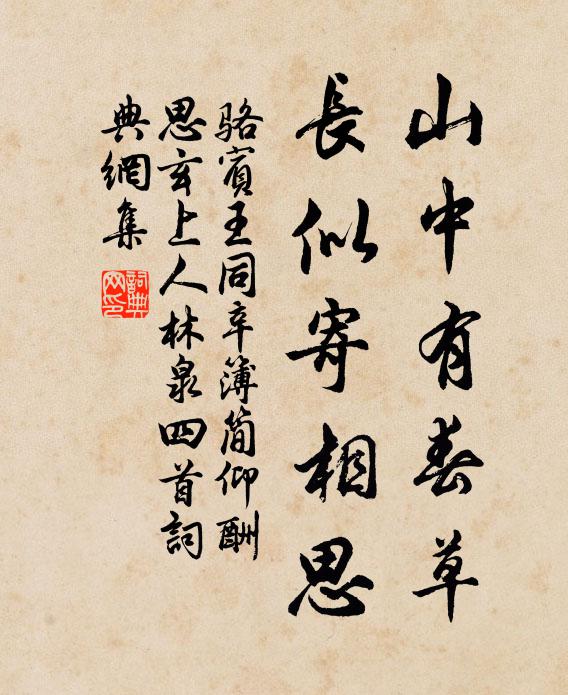 山中有春草
長似寄相思
駱賓王同辛簿簡仰酬
思玄上人林泉四首詞
典網集
詞典网印